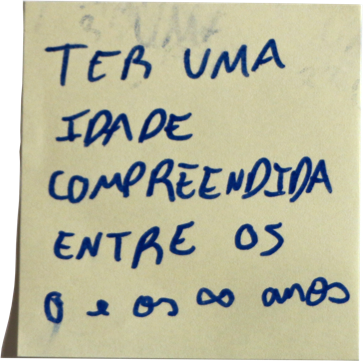 TER UMA
IDADE
COMPREENDIDA
ENTRE OS
0 e os ∞ anos